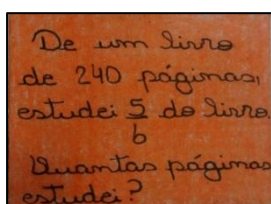 De um livro
de 240 páginas,
estudei 5/6 do livro.
Quantas páginas
estudei?